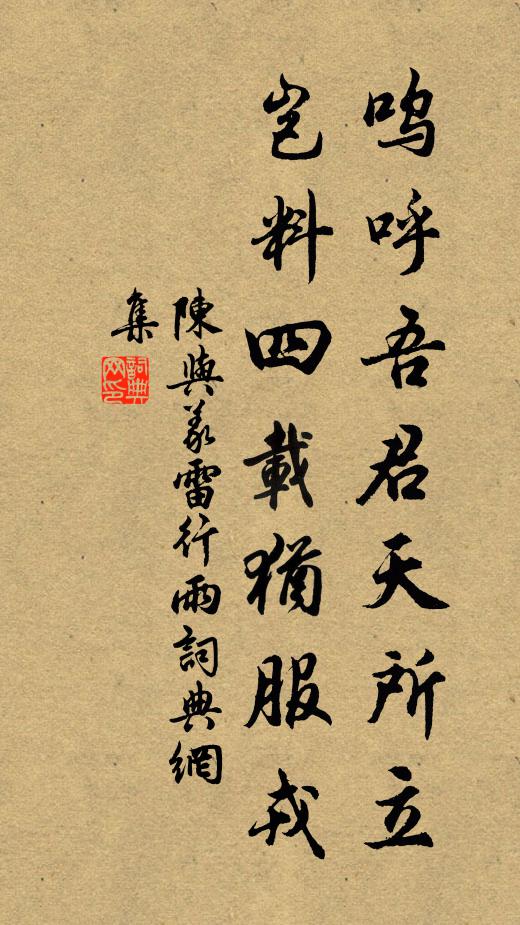 嗚呼吾君天所立
豈料四載猶服戎
陳與義雷行雨詞典網
集
詞典網印